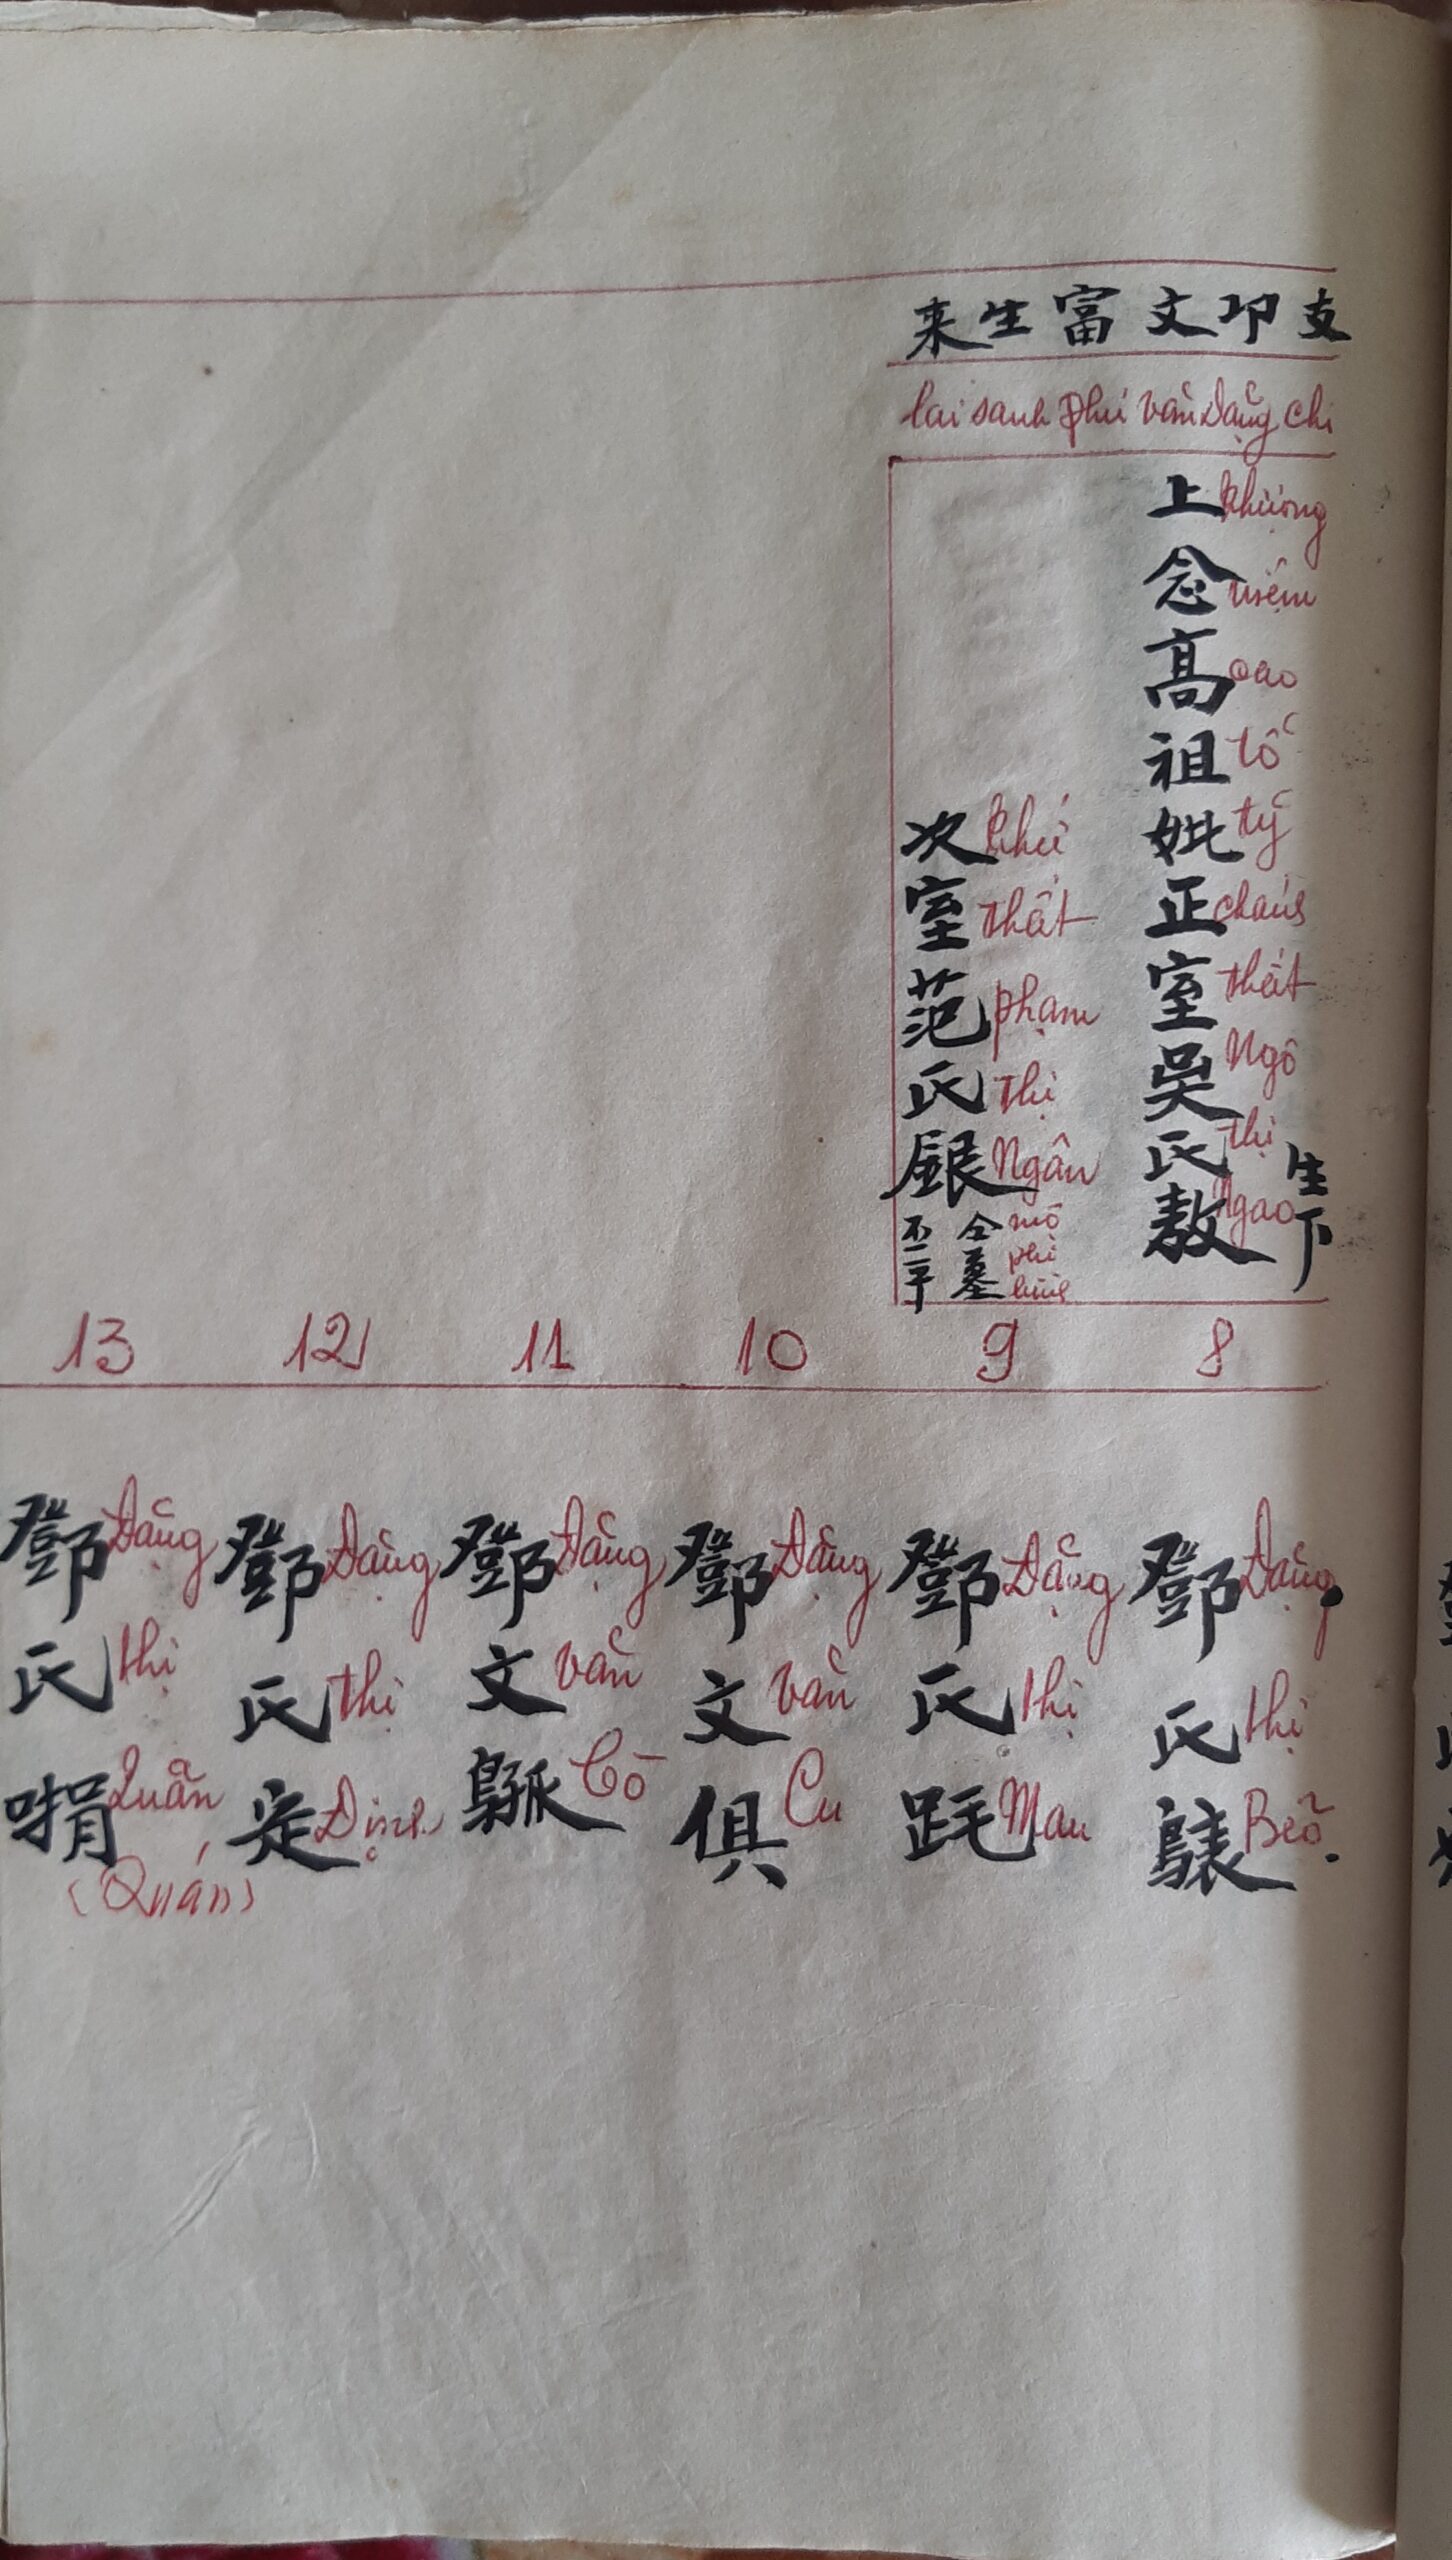 支卬文富生来
lai sanh phú văn Đặng chi
上念高祖妣正室吳氏敖
Thượng niệm cao tổ tỷ chánh thất Ngô thị Ngao
生下
次室范氏銀
thứ thất phạm thị Ngân
仝墓
mộ
8
9
10
11
12
13
鄧氏
Đặng thị Bẽo
鄧氏
Đặng thị Mau
鄧文俱
Đặng văn Cu
鄧文
Đặng văn Cò
鄧氏定
Đặng thị Định
鄧氏
Đặng thị Quẵn
(Quán)